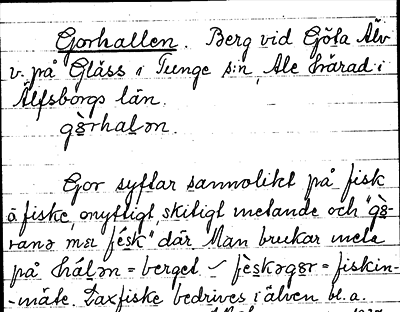 Gorhallen. Berg vid Göta Älv
v. på Gläss i Tunge s:n, Ale härad i
Älfsborgs län.
gọ̀rhaḷən.
Gor syftar sannolikt på fisk
å fiske, onyttigt, skitigt metande och "gọ̀-
ranə mɛ fésk" där Man brukar meta
på háḷən = berget. ✓ fèskəgər = fiskin-
-mäte. Laxfiske bedrives i älven bl.a.